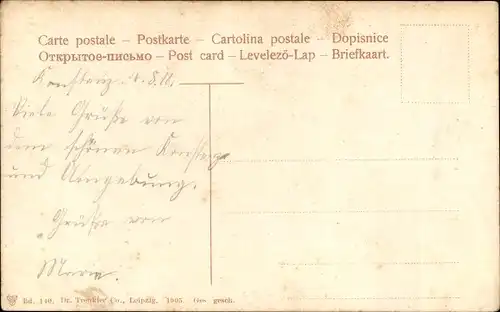 Carte postale – Postkarte – Cartolina postale – Dopisnice
Открытое-письмо – Post card – Levelező-Lap – Briefkaart.
Konstanz 8.11.
Viele Grüße von
dem schönen Konstanz
und Umgebung.
Grüße von
Marie.
Ed. 140. Dr. Trenkler Co., Leipzig. 1905. Ges gesch.